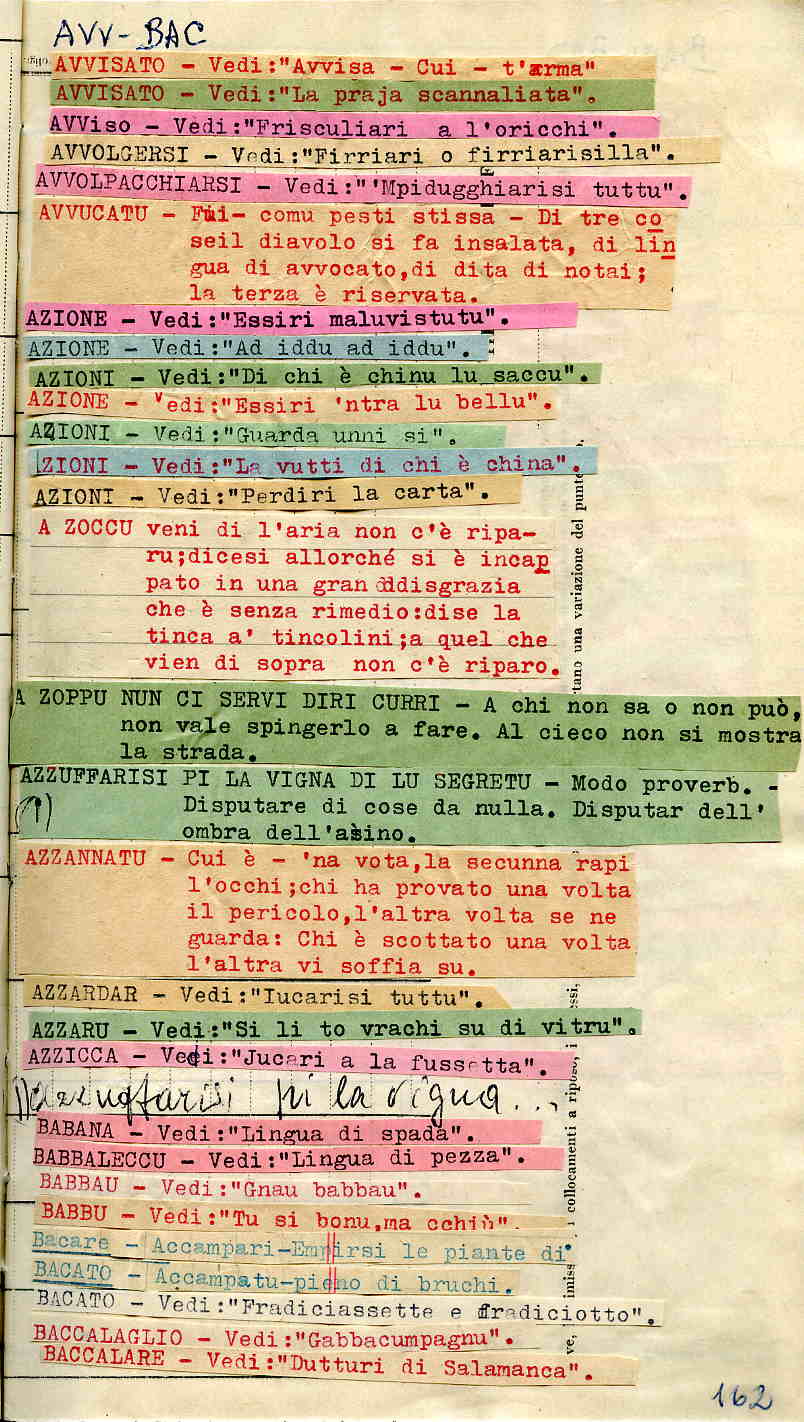 AVV-BAC
AVVISATO - Vedi:"Avvisa - Cui - t'arma"
AVVISATO - Vedi:"La praja scannaliata".
AVViso - Vedi:"Frisculiari a l'oricchi".
AVVOLGERSI - Vedi:"Firriari o firriarisilla".
AVVOLPACCHIARSI - Vedi:"'Mpidugghiarisi tuttu".
AVVUCATU - Fui- comu pesti stissa - Di tre co
seil diavolo si fa insalata, di lin
gua di avvocato,di dita di notai;
la terza è riservata.
AZIONE - Vedi:"Essiri maluvistutu".
AZIONE - Vedi:"Ad iddu ad iddu".
AZIONI - Vedi:"Di chi è chinu lu saccu".
AZIONE - Vedi:"Essiri 'ntra lu bellu".
AZIONI - Vedi:"Guarda unni si".
ZIONI - Vedi:"La vutti di chi è china".
AZIONI - Vedi:"Perdiri la carta".
A ZOCCU veni di l'aria non c'è ripa-
ru;dicesi allorché si è incap
pato in una gran ddisgrazia
che è senza rimedio:dise la
tinca a' tincolini;a quel che
vien di sopra non c'è riparo.
A ZOPPU NUN CI SERVI DIRI CURRI - A chi non sa o non può,
non vale spingerlo a fare. Al cieco non si mostra
la strada.
AZZUFFARISI PI LA VIGNA DI LU SEGRETU - Modo proverb. -
Disputare di cose da nulla. Disputar dell'
ombra dell'asino.
(1)
AZZANNATU - Cui è - 'na vota,la secunna rapi
l'occhi;chi ha provato una volta
il pericolo,l'altra volta se ne
guarda: Chi è scottato una volta
l'altra vi soffia su.
AZZARDAR - Vedi:"Iucarisi tuttu".
AZZARU - Vedi:"Si li to vrachi su di vitru".
AZZICCA - Vedi:"Jucari a la fussetta".
1) azzuffarisi pi la vigna...
BABANA - Vedi:"Lingua di spada".
BABBALECCU - Vedi:"Lingua di pezza".
BABBAU - Vedi:"Gnau babbau".
BABBU - Vedi:"Tu si bonu,ma cchiù".
Bacare - Accampari-Empirsi le piante di
BACATO - Accampatu-pieno di bruchi.
BACATO - Vedi:"Fradiciassette e fradiciotto".
BACCALAGLIO - Vedi:"Gabbacumpagnu".
BACCALARE - Vedi:"Dutturi di Salamanca".
tano una variazione del punto
collocamenti a riposo, i
162